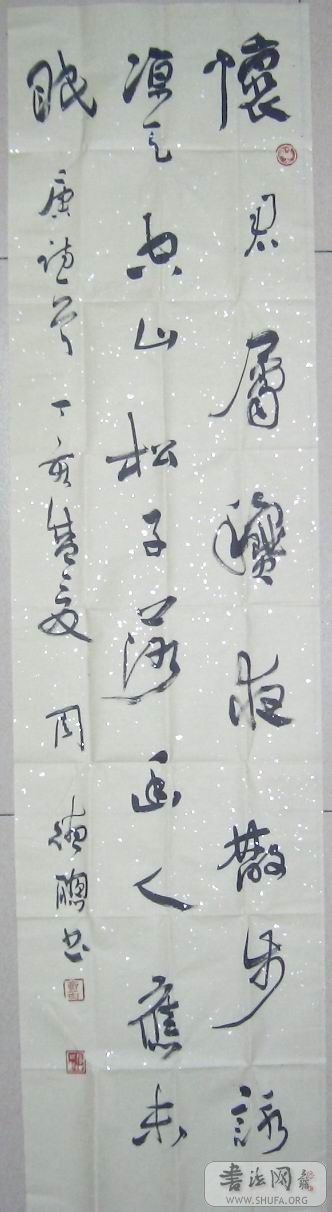 懷君屬龝夜散步詠
凉天空山松子落幽人應未
眠 唐詩一首 丁亥盛夏 周德聰書
书法网
WWW.SHUFA.ORG